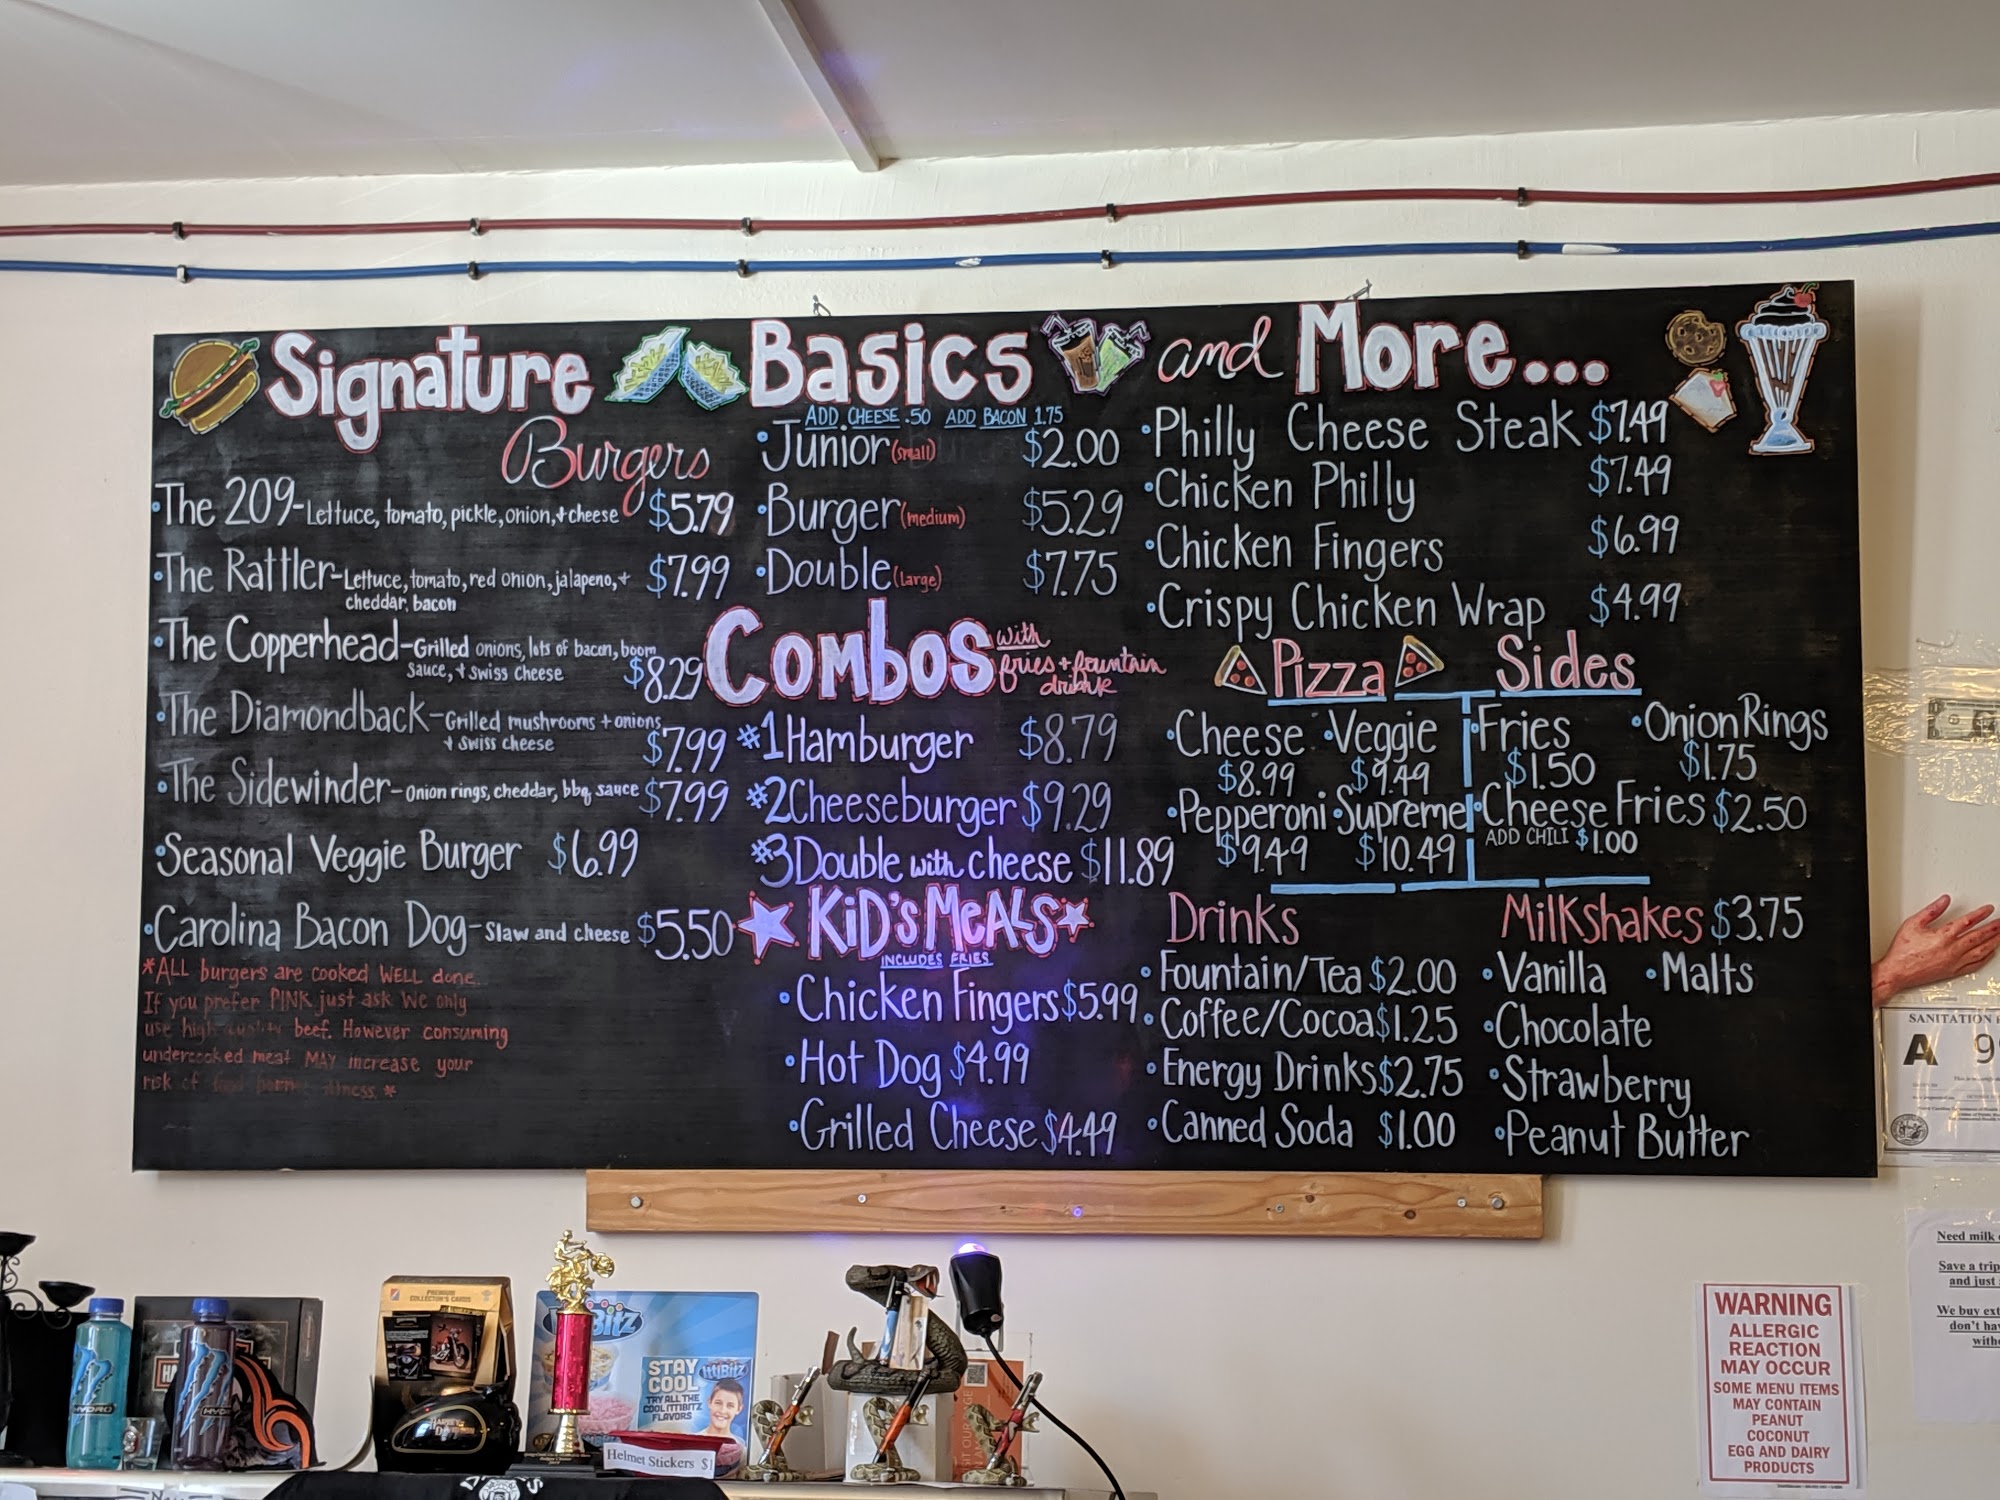 Signature
Burgers
The 209-Lettuce, tomato, pickle, onion, + cheese $5.79
The Rattler-Lettuce, tomato, red onion, jalapeno, + $7.99
cheddar, bacon
The Copperhead-Grilled onions, lots of bacon, boom
sauce, + swiss cheese $8.29
The Diamondback-Grilled mushrooms + onions
+ swiss cheese $7.99
The Sidewinder-Onion rings, cheddar, bbq sauce $7.99
Seasonal Veggie Burger $6.99
Carolina Bacon Dog-Slaw and cheese $5.50
*ALL burgers are cooked WELL done.
If you prefer PINK just ask We only
use high quality beef. However consuming
undercooked meat MAY increase your
risk of food borne illness.*
Basics
ADD CHEESE .50 ADD BACON 1.75
Junior (small) $2.00
Burger (medium) $5.29
Double (large) $7.75
Combos with
fries + fountain
drink
#1 Hamburger $8.79
#2 Cheeseburger $9.29
#3 Double with cheese $11.89
KiD's MeALS
INCLUDES FRIES
Chicken Fingers $5.99
Hot Dog $4.99
Grilled Cheese $4.49
and More...
Philly Cheese Steak $7.49
Chicken Philly $7.49
Chicken Fingers $6.99
Crispy Chicken Wrap $4.99
Pizza
Cheese Veggie
$8.99 $9.49
Pepperoni Supreme
$9.49 $10.49
Sides
Fries Onion Rings
$1.50 $1.75
Cheese Fries $2.50
ADD CHILI $1.00
Drinks
Fountain/Tea $2.00
Coffee/Cocoa $1.25
Energy Drinks $2.75
Canned Soda $1.00
Milkshakes $3.75
Vanilla Malts
Chocolate
Strawberry
Peanut Butter
SANITATION
A 9
Need milk
Save a trip
and just
We buy ext
don't hav
WARNING
ALLERGIC
REACTION
MAY OCCUR
SOME MENU ITEMS
MAY CONTAIN
PEANUT
COCONUT
EGG AND DAIRY
PRODUCTS
HYDRO
HYDRO
PREMIUM
COLLECTOR'S CARDS
HARLEY
DAVIDSON
STAY
COOL
TRY ALL THE
COOL ITTIBITZ
FLAVORS
IttiBitz
Helmet Stickers $1